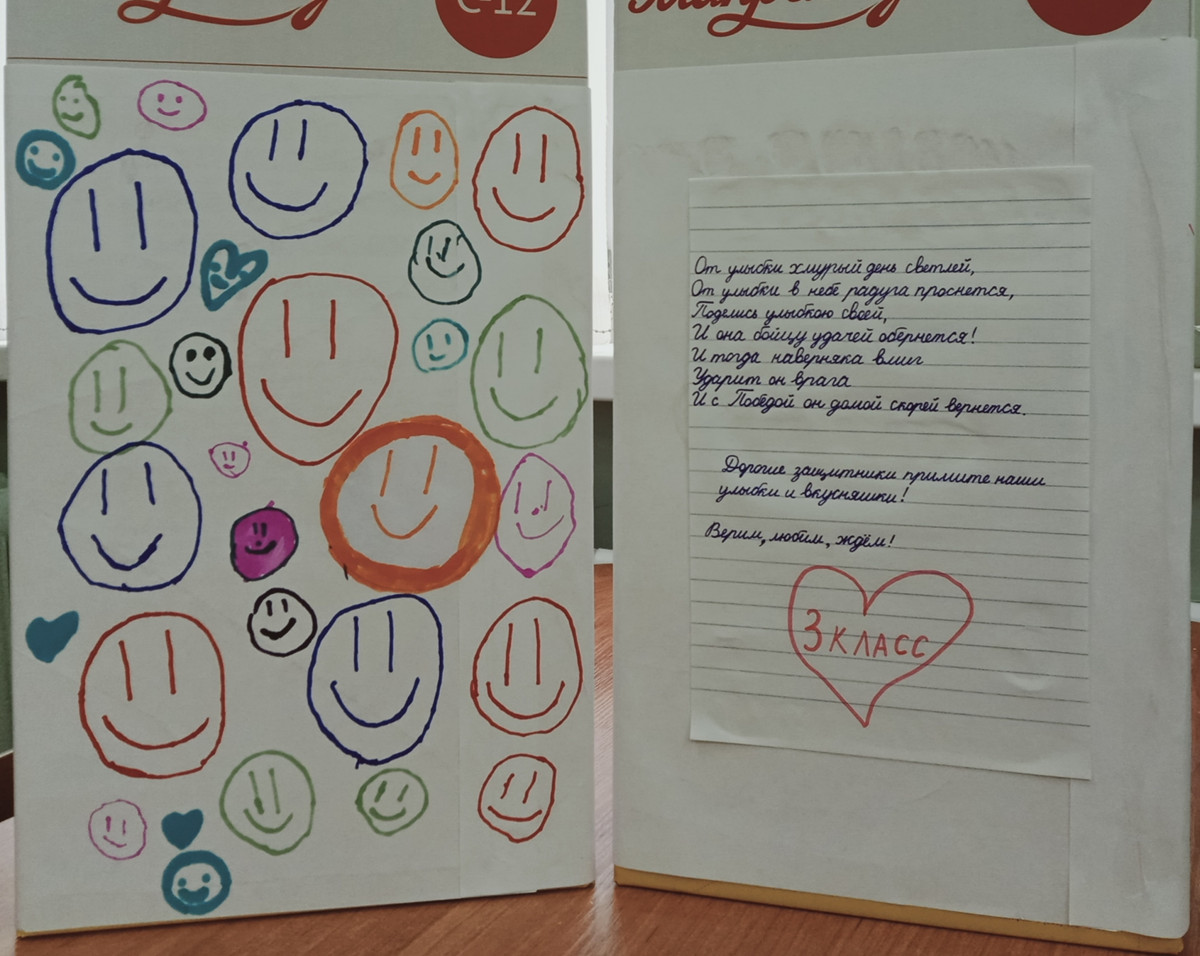 С-12
От улыбки хмурый день светлей,
От улыбки в небе радуга проснется,
Поделись улыбкою своей,
И она бойцу удачей обернется!
И тогда наверняка вмиг
Ударит он врага
И с Победой он домой скорей вернется.
Дорогие защитники примите наши
улыбки и вкусняшки!
Верим, любим, ждём!
3 КЛАСС